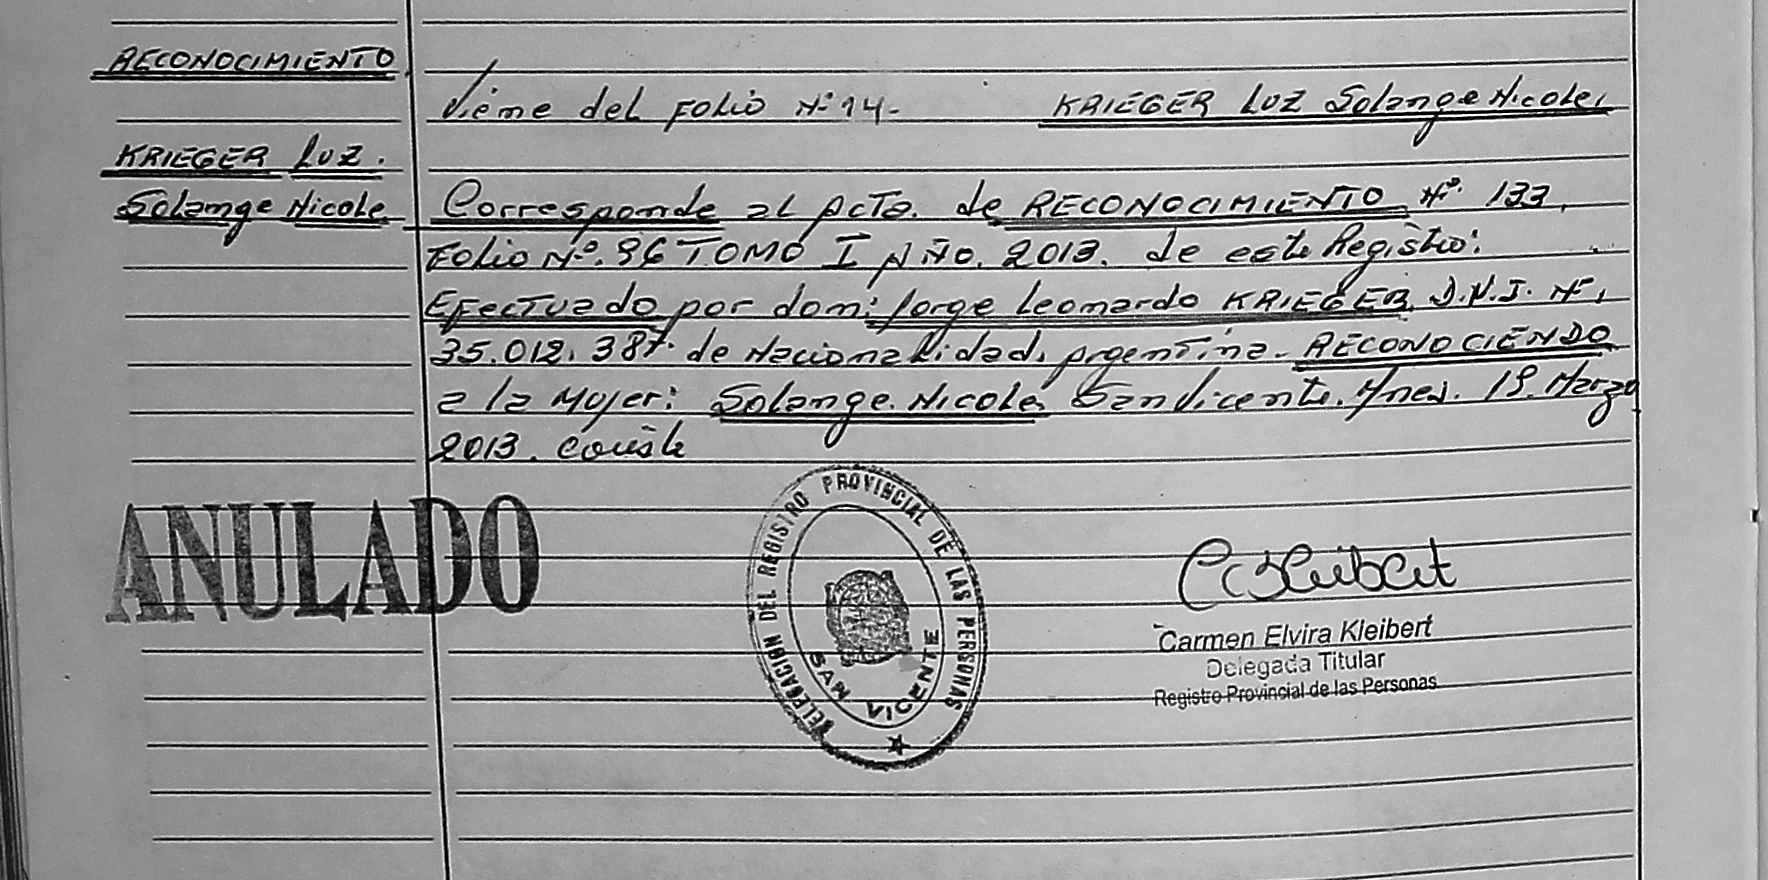 RECONOCIMIENTO
KRIEGER Luz.
Solange Nicole
Viene del Folio Nº 14- KRIEGER Luz Solange Nicole,
Corresponde al Acta. de RECONOCIMIENTO Nº 133,
Folio Nº. 96 TOMO I AÑO. 2013. de este Registro:
Efectuado por don: Jorge Leonardo KRIEGER D.N.I. Nº,
35.012.387. de Nacionalidad, Argentina- RECONOCIENDO
a la Mujer: Solange. Nicole, San Vicente. Mnes. 19. Marzo
2013. Conste
ANULADO
DELEGACION DEL REGISTRO PROVINCIAL DE LAS PERSONAS
SAN VICENTE
Carmen Elvira Kleibert
Delegada Titular
Registro Provincial de las Personas